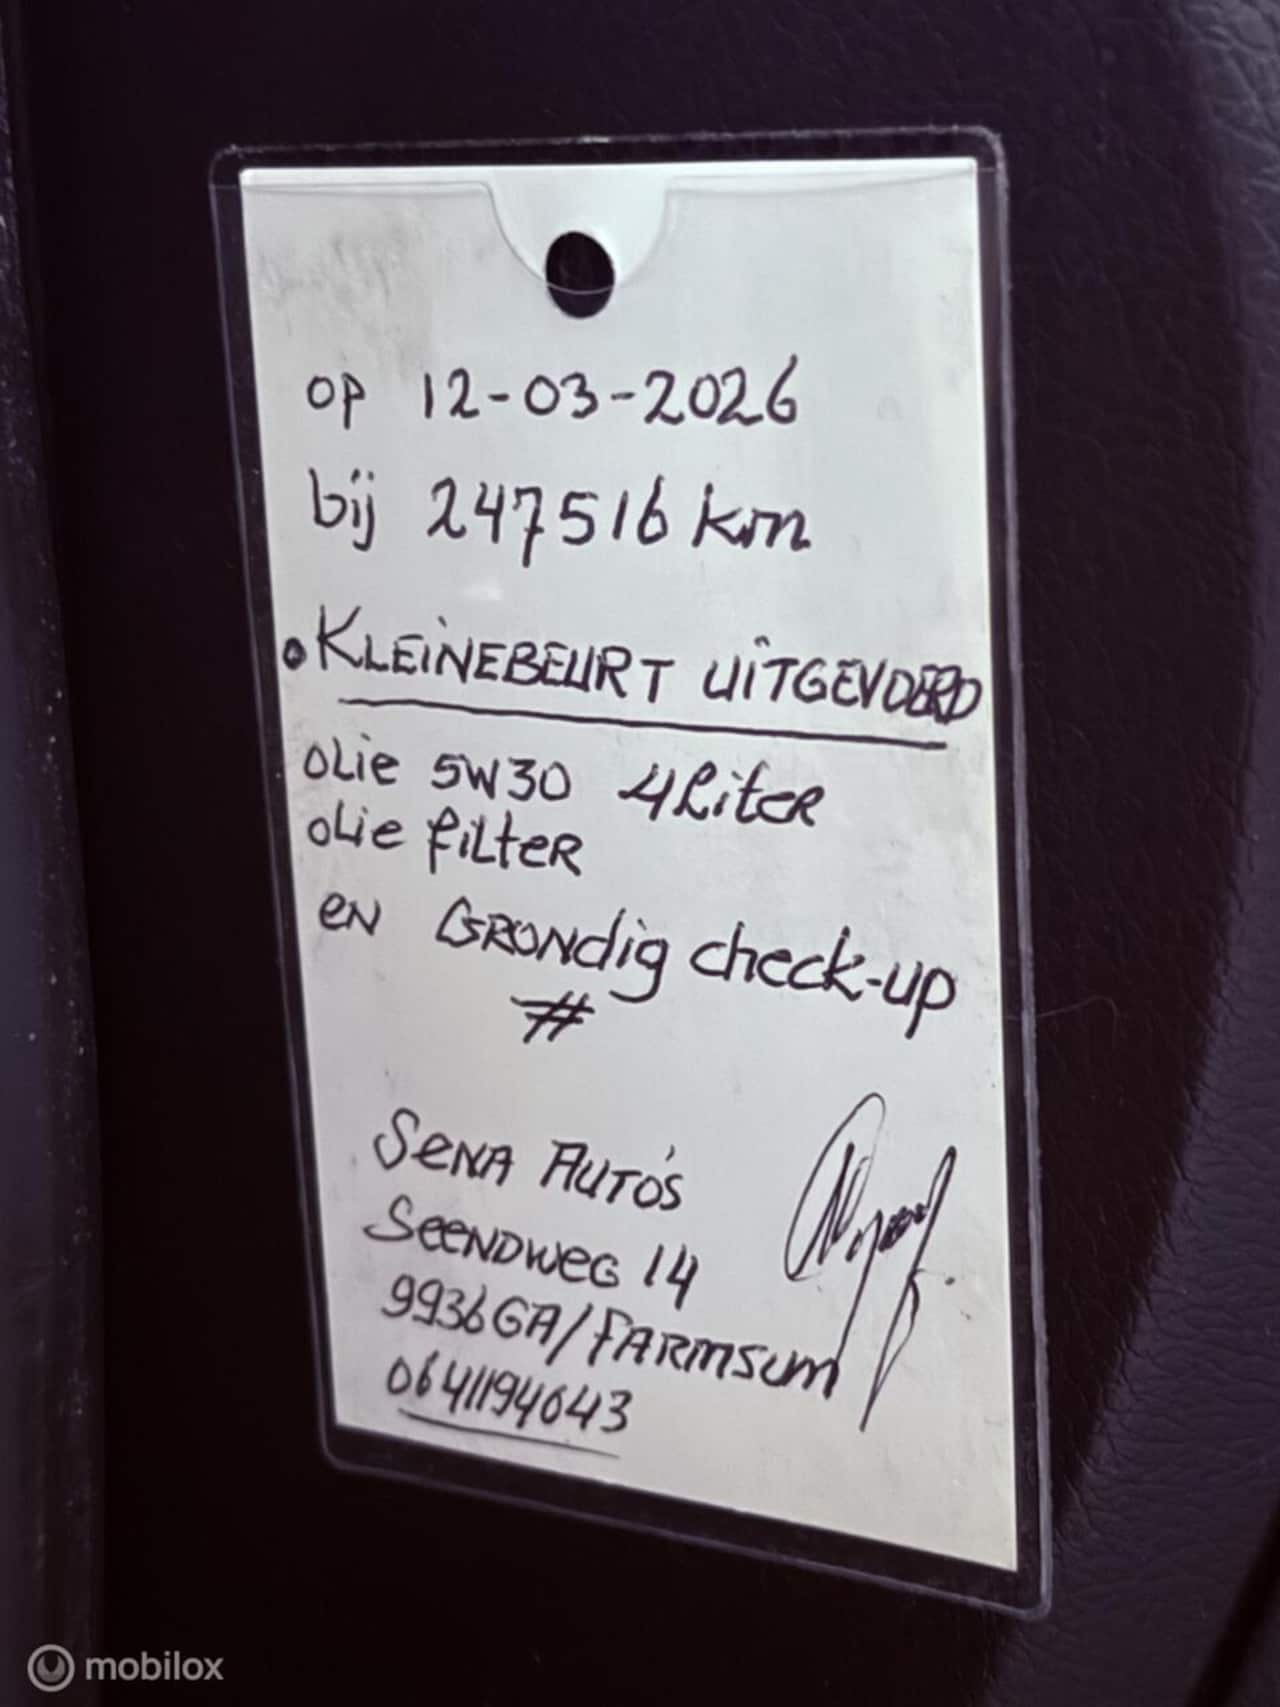 op 12-03-2026
bij 247516 km
• KLEINEBEURT UITGEVOERD
OLie 5W30 4Liter
OLie filter
en GRONdig check-up
#
SENA AUTO'S
SEENDWEG 14
9936GA/FARMSUM
0641194043
mobilox